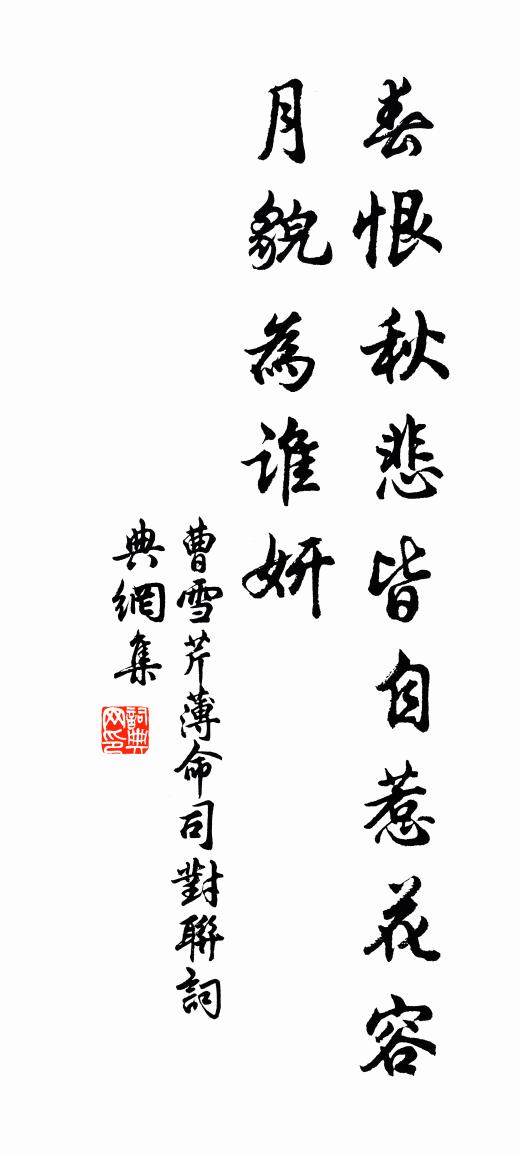 春恨秋悲皆自惹花容
月貌為誰妍
曹雪芹薄命司對聯詞
典網集
詞典
网印